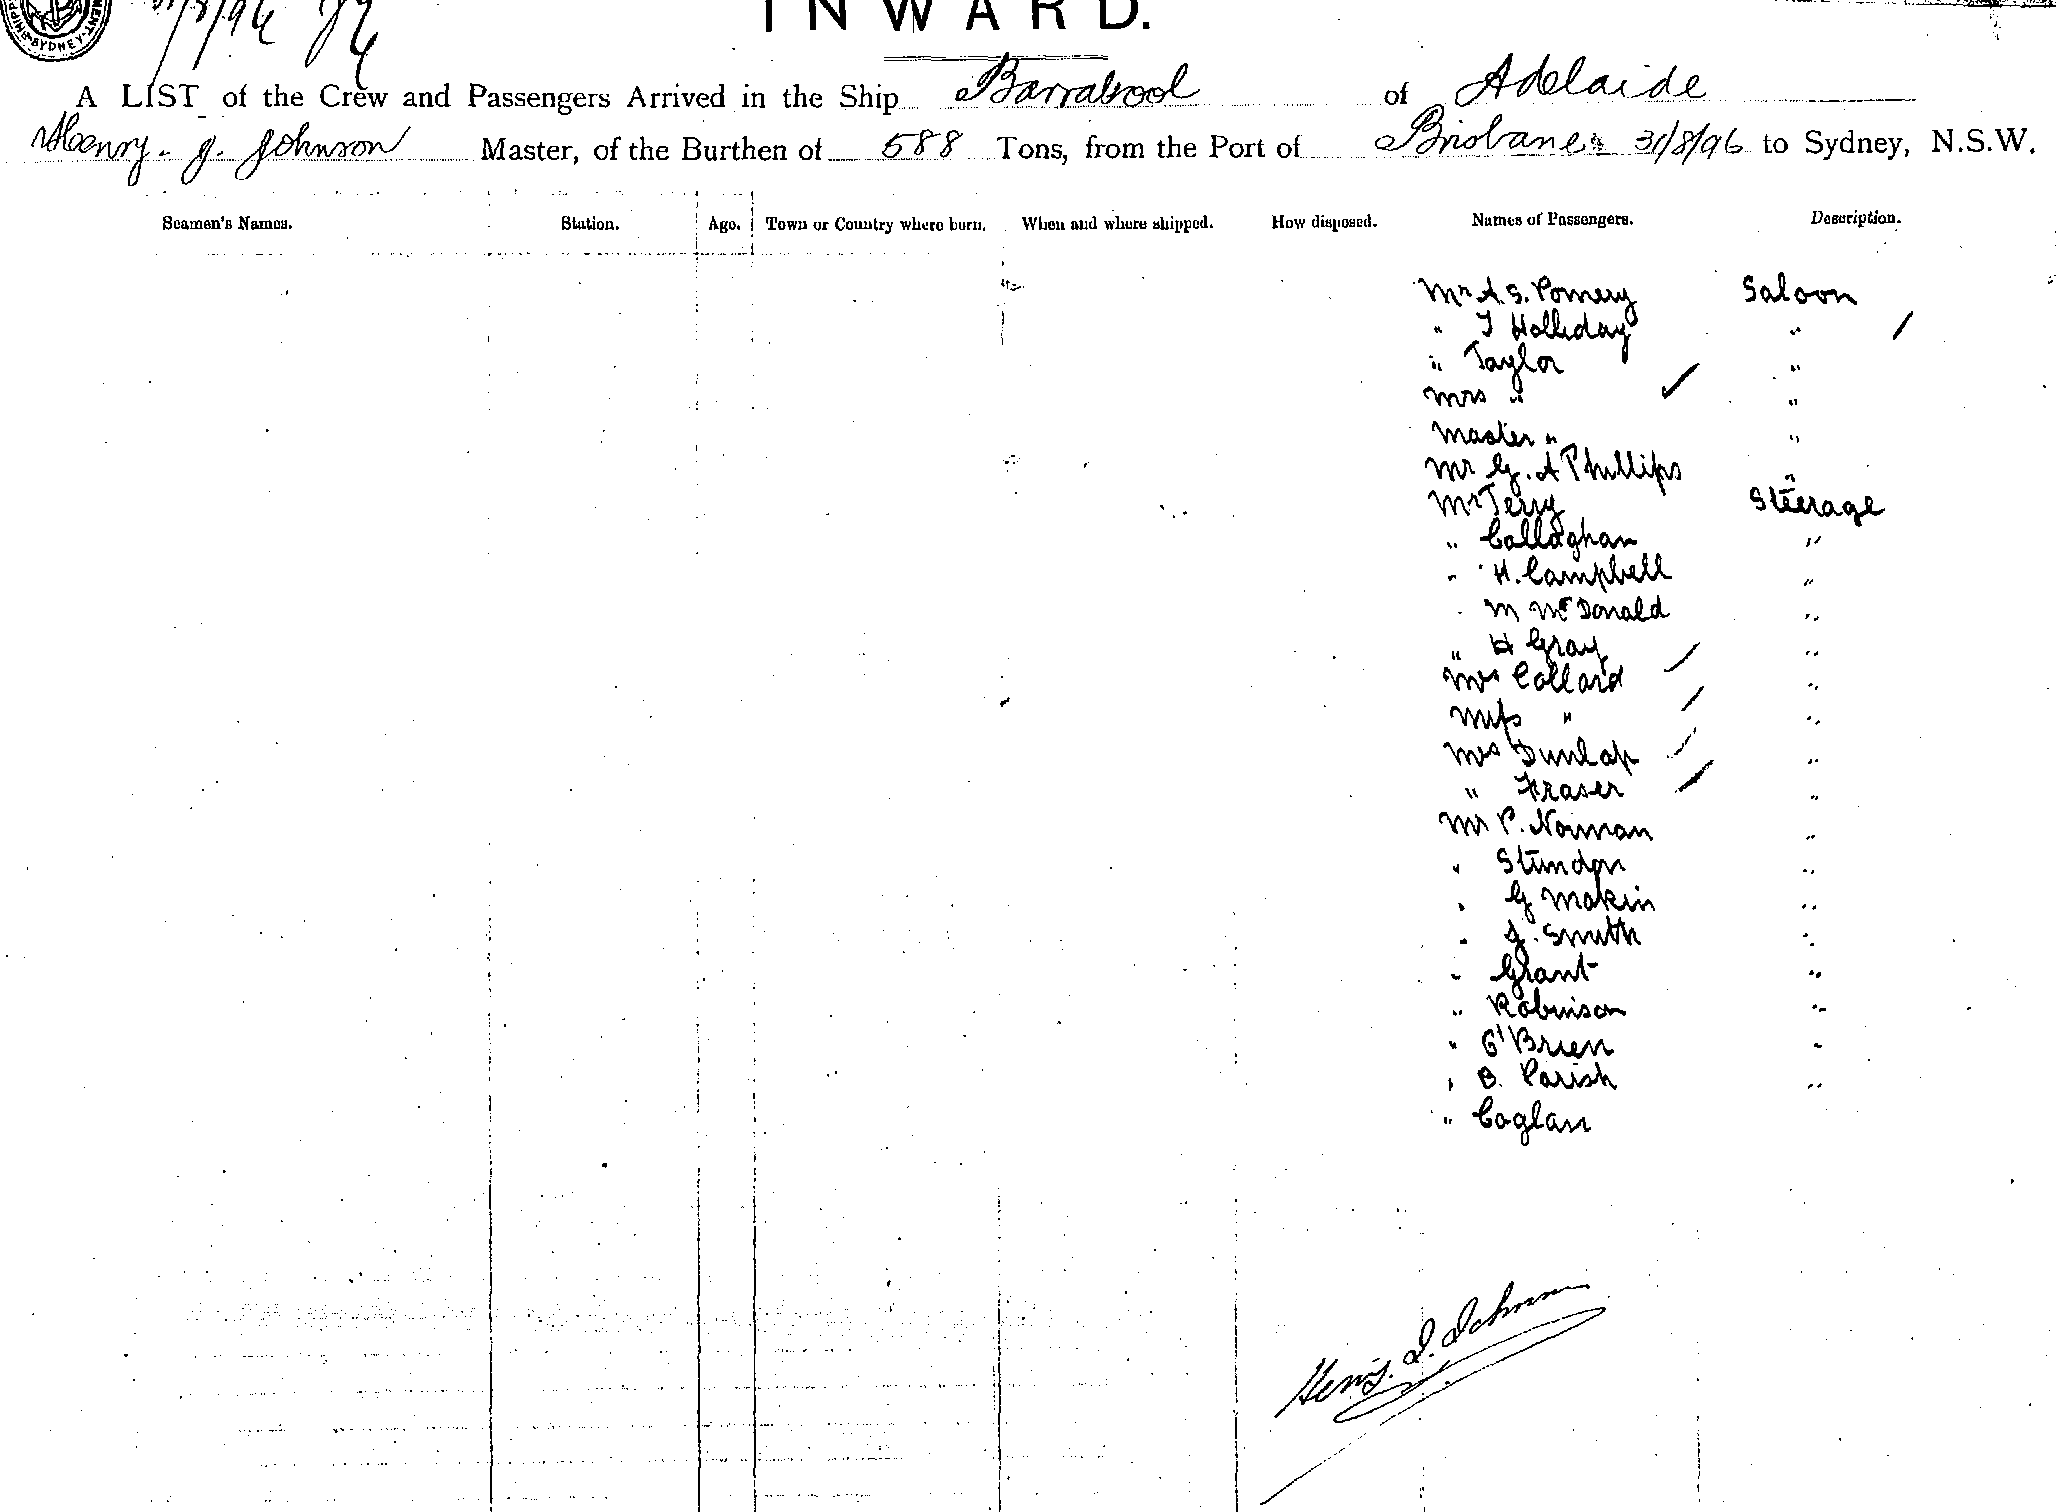 SYDNEY
INWARD.
A LIST of the Crew and Passengers Arrived in the Ship Barrabool of Adelaide
Henry. J. Johnson Master, of the Burthen of 588 Tons, from the Port of Brisbane 31/8/96 to Sydney, N.S.W.
Seamen's Names. Station. Age. Town or Country where born. When and where shipped. How disposed. Names of Passengers. Description.
Mr A. S. Pomery Saloon
" T Holliday "
" Taylor "
Mrs " "
Master " "
Mr G. A Phillips "
Mr Terry Steerage
" Callaghan "
" H. Campbell "
M McDonald "
" H Gray "
Mrs Collard "
Miss " "
Mrs Dunlop "
" Fraser "
Mr P. Norman "
" Stundon "
" G Makin "
" J. Smith "
" Grant "
" Robinson "
" O'Brien "
" B. Parish "
" Coglan
Henry. J. Johnson